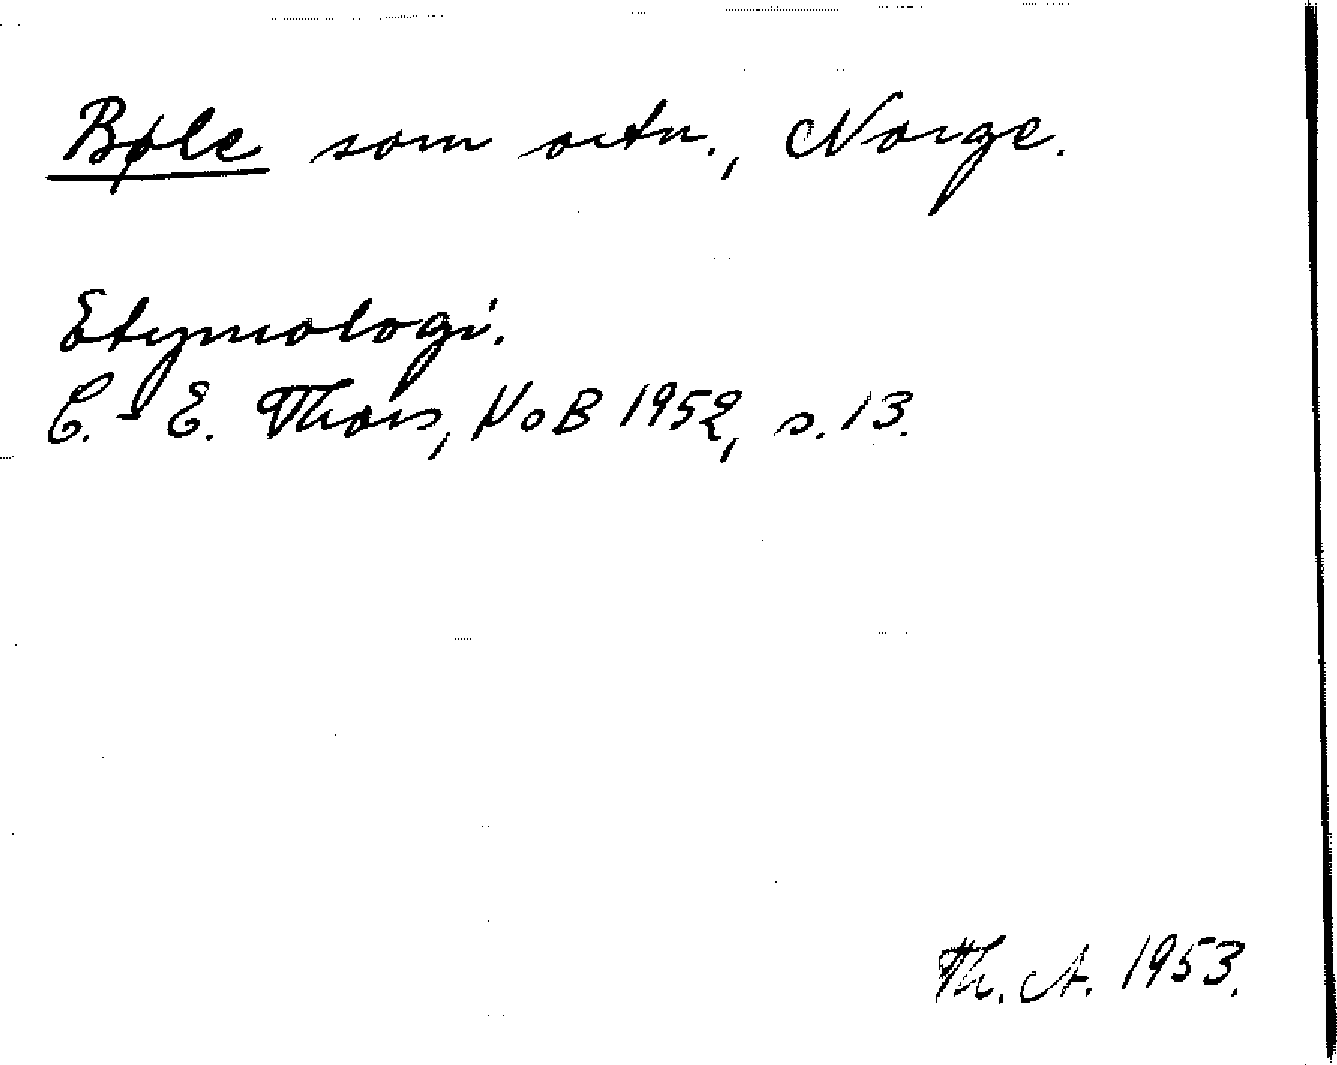 Bøle som ortn., Norge.
Etymologi.
C.-E. Thors, NoB 1952, s. 13.
Th. A. 1953.